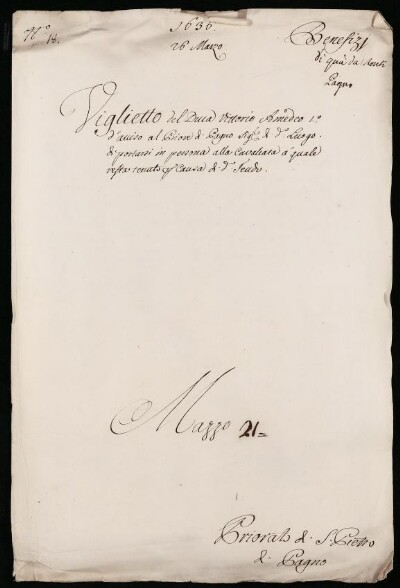 N.º 14.
1636.
26 Marzo
Benefizj
di quà da Monti
Pagno
Viglietto del Duca Vittorio Amedeo 1.º
d'avviso al Prior di Pagno Sig.re di d.º Luogo
di portarsi in persona alla Cavalcata a' quale
resta tenuto p. Causa di d.º Feudo.
Mazzo 21=
Priorato di S. Pietro
di Pagno